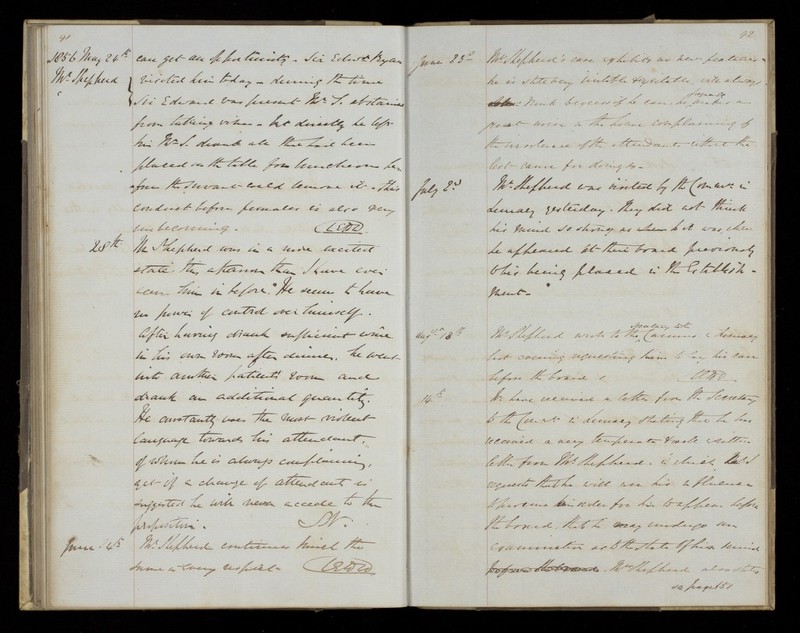 91
1856 May 24th can get an opportunity - Sir Edward Bryan
Mr. Shepherd visited him today - during the time
Sir Edward was present Mr. S. abstained
from taking wine - but directly he left
him Mr S. drank all that had been
placed on the table for luncheon
before the servant could remove it - This
conduct before females is also very
unbecoming.
28th Mr Shepherd was in a more excited
state this afternoon than I have ever
seen him in before. He seems to have
no power of control over himself.
After having drank sufficient wine
in his own room after dinner, he went
into another patient's room and
drank an additional quantity.
He constantly uses the most violent
language towards his attendant,
of whom he is always complaining,
yet if a change of attendant is
suggested he will never accede to the
proposition.
June 14th Mr. Shepherd continues much the
same in every respect.
92
June 23d Mr. Shepherd's case exhibits no new features -
he is still very irritable & excitable, and always
drinks to excess if he can, he frequently makes a
great noise in the house complaining of
the insolence of the attendants without the
least cause for doing so -
July 2d Mr. Shepherd was visited by the Comrs. in
Lunacy yesterday. They did not think
his mind so strong as when
he appeared at their board previously
to his being placed in the Establish-
ment -
Augst 13th Mr Shepherd wrote to the Secretary to the Comrs in Lunacy
last evening requesting him to lay his case
before the board
14th We have received a letter from the Secretary
to the Comrs in Lunacy stating that he has
received a very temperate & well written
letter from Mr Shepherd - in which he
requests that he will use his influence
to procure an order for him to appear before
the board, that he may undergo an
examination as to the state of his mind
before the board. Mr Shepherd also states
see page 151